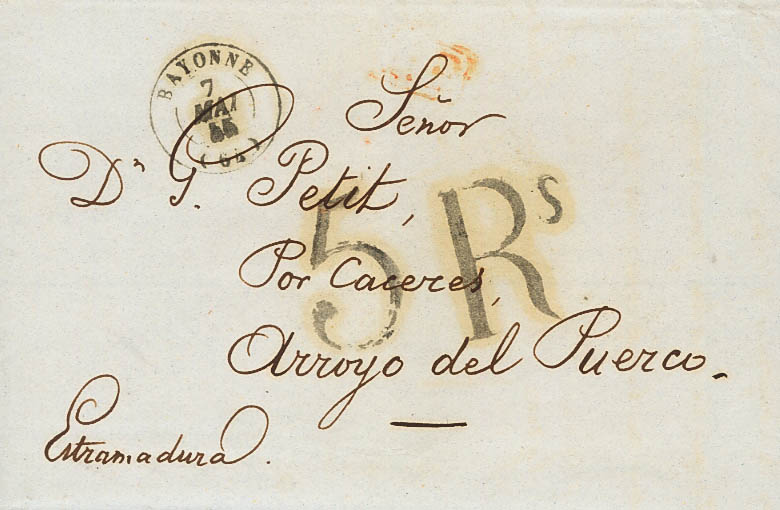 BAYONNE
7
MAI
55
(64)
Señor
Dn G. Petit,
5 Rs
Por Caceres,
Arroyo del Puerco.
Estramadura.